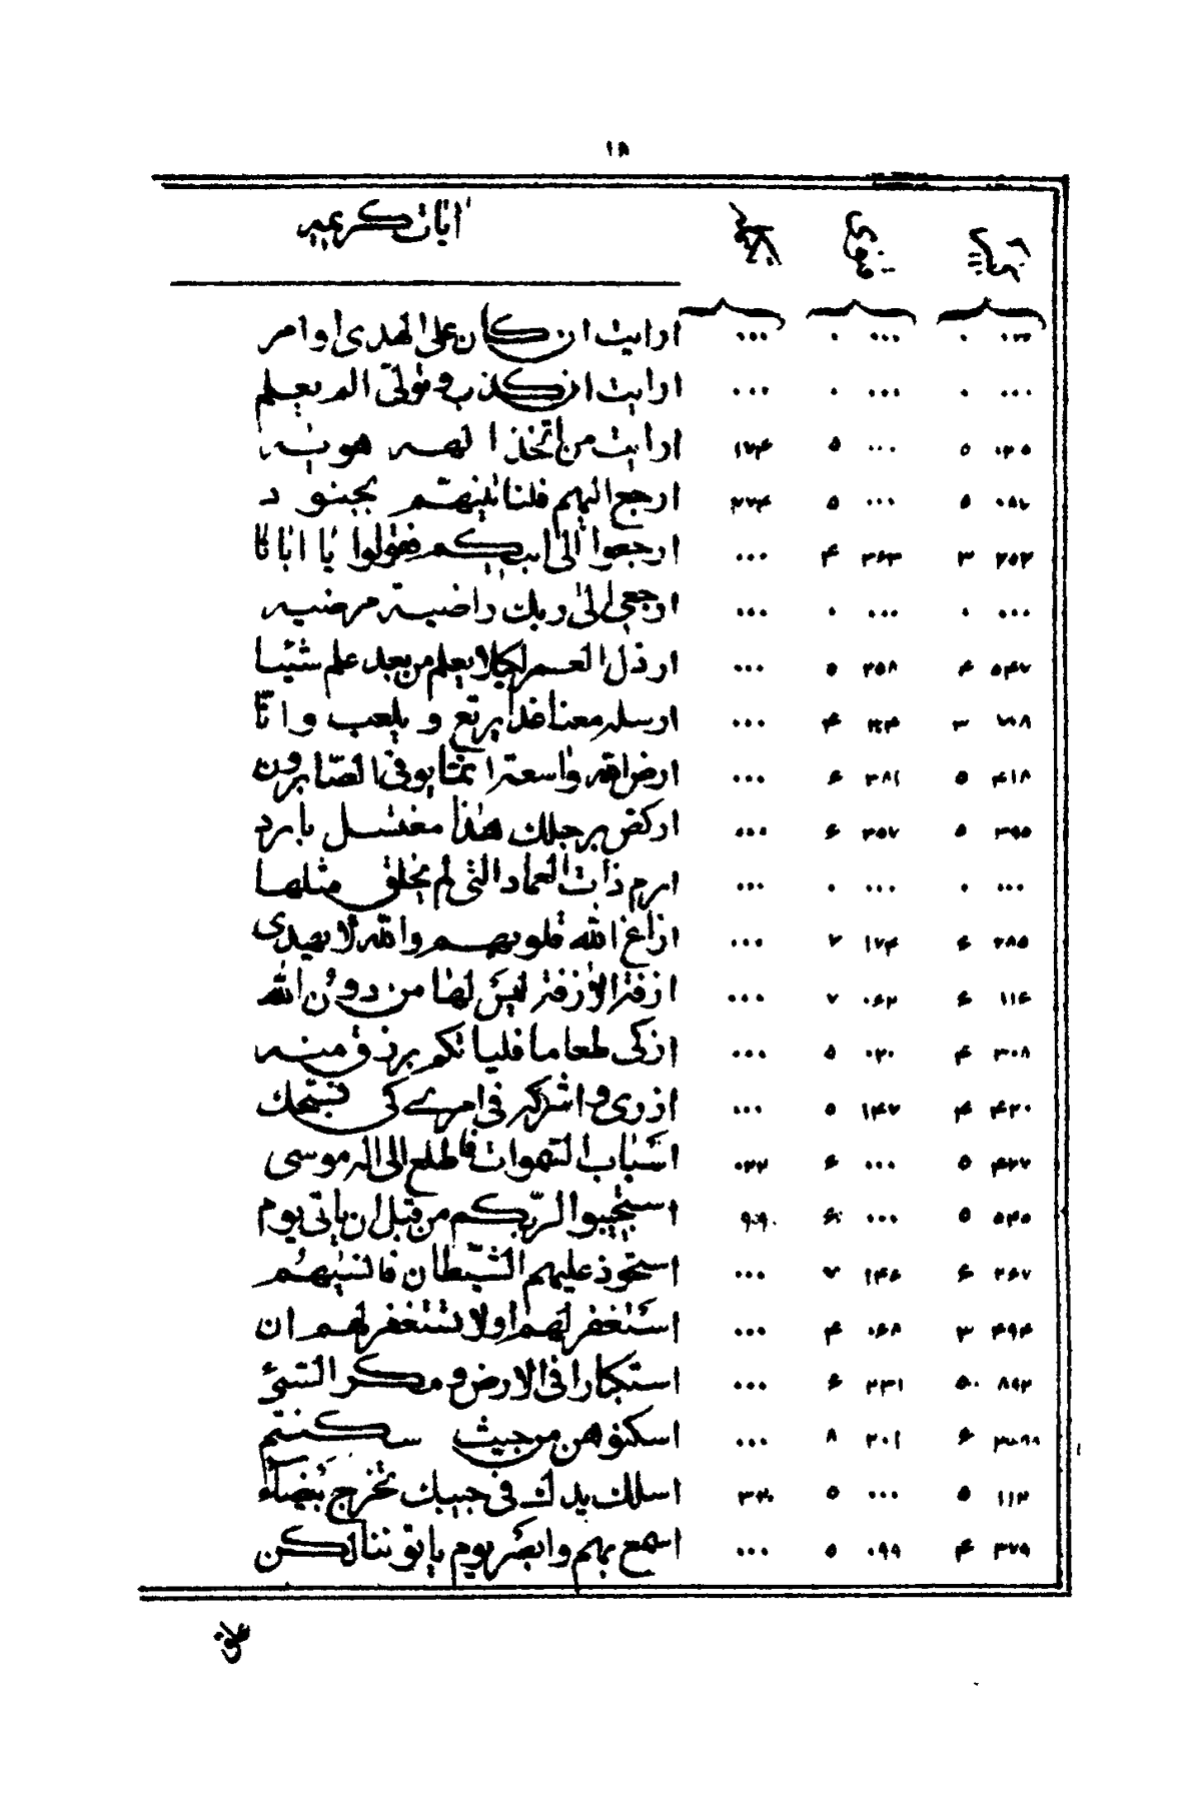 ۱۸
ایات کریمه
۰ ۰۰۰ ۰ ۰۰۰ ارایت ان کان علی الهدی او امر
۰۰۰ ۰ ۰۰۰ ۰ ۰۰۰ ارایت ان کذب و تولی الم یعلم
۰۲۵ ۵ ۰۰۰ ۵ ۱۷۴ ارایت من اتخذ الهه هویه
۵ ۰۰۰ ۵ ۲۷۴ ارجع الیهم فلناتینهم بجنود
۲۵۲ ۳ ۳۶۳ ۴ ۰۰۰ ارجعوا الی ابیکم فقولوا یا ابانا
۰۰۰ ۰ ۰۰۰ ۰ ۰۰۰ ارجعی الی ربک راضیة مرضیه
۵۴۷ ۴ ۲۵۸ ۵ ۰۰۰ ارذل العمر لکیلا یعلم من بعد علم شیئا
۳ ۴ ۰۰۰ ارسله معنا غدا یرتع و یلعب و انا
۴۱۸ ۵ ۳۸۱ ۶ ۰۰۰ ارض الله واسعة انما یوفی الصابرون
۳۹۵ ۵ ۳۵۷ ۶ ۰۰۰ ارکض برجلک هذا مغتسل بارد
۰۰۰ ۰ ۰۰۰ ۰ ۰۰۰ ارم ذات العماد التی لم یخلق مثلها
۲۸۵ ۶ ۱۷۴ ۷ ۰۰۰ ازاغ الله قلوبهم والله لا یهدی
۱۱۶ ۶ ۰۶۲ ۷ ۰۰۰ ازفة الازفة لیس لها من دون الله
۳۰۸ ۴ ۰۲۰ ۵ ۰۰۰ ازکی طعاما فلیاتکم برزق منه
۴۲۰ ۴ ۱۴۷ ۵ ۰۰۰ ازری و اشرکه فی امری کی نسبحک
۴۲۷ ۵ ۰۰۰ ۶ ۰۲۲ اسباب السموات فاطلع الی اله موسی
۵۴۵ ۵ ۰۰۰ ۶ ۹۰۹۰ استجیبوا لربکم من قبل ان یاتی یوم
۲۶۷ ۶ ۱۴۶ ۷ ۰۰۰ استحوذ علیهم الشیطان فانسیهم
۴۹۴ ۳ ۰۶۸ ۴ ۰۰۰ استغفر لهم اولا تستغفر لهم ان
۸۹۲ ۵ ۲۳۱ ۶ ۰۰۰ استکبارا فی الارض و مکر السیئ
۶ ۲۰۱ ۸ ۰۰۰ اسکنوهن من حیث سکنتم
۱۱۲ ۵ ۰۰۰ ۵ ۳۲۰ اسلک یدک فی جیبک تخرج بیضاء
۳۷۹ ۴ ۰۹۹ ۵ ۰۰۰ اسمع بهم وابصر یوم یاتوننا لکن